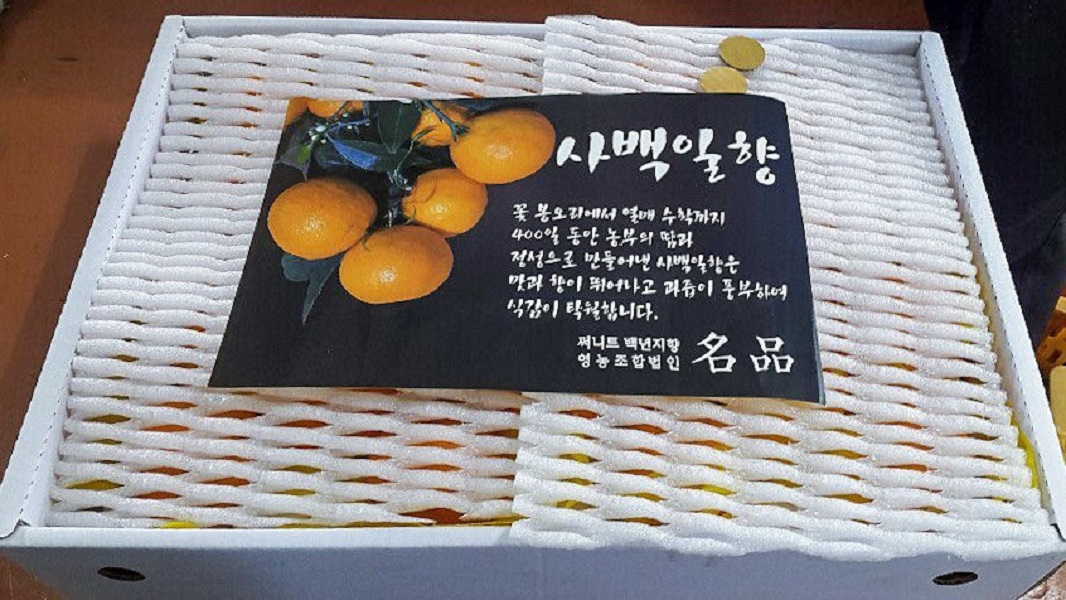 사백일향
꽃 봉오리에서 열매 수확까지
400일 동안 농부의 땀과
정성으로 만들어낸 사백일향은
맛과 향이 뛰어나고 과즙이 풍부하여
식감이 탁월합니다.
써니트 백년지향
영농조합법인
名品